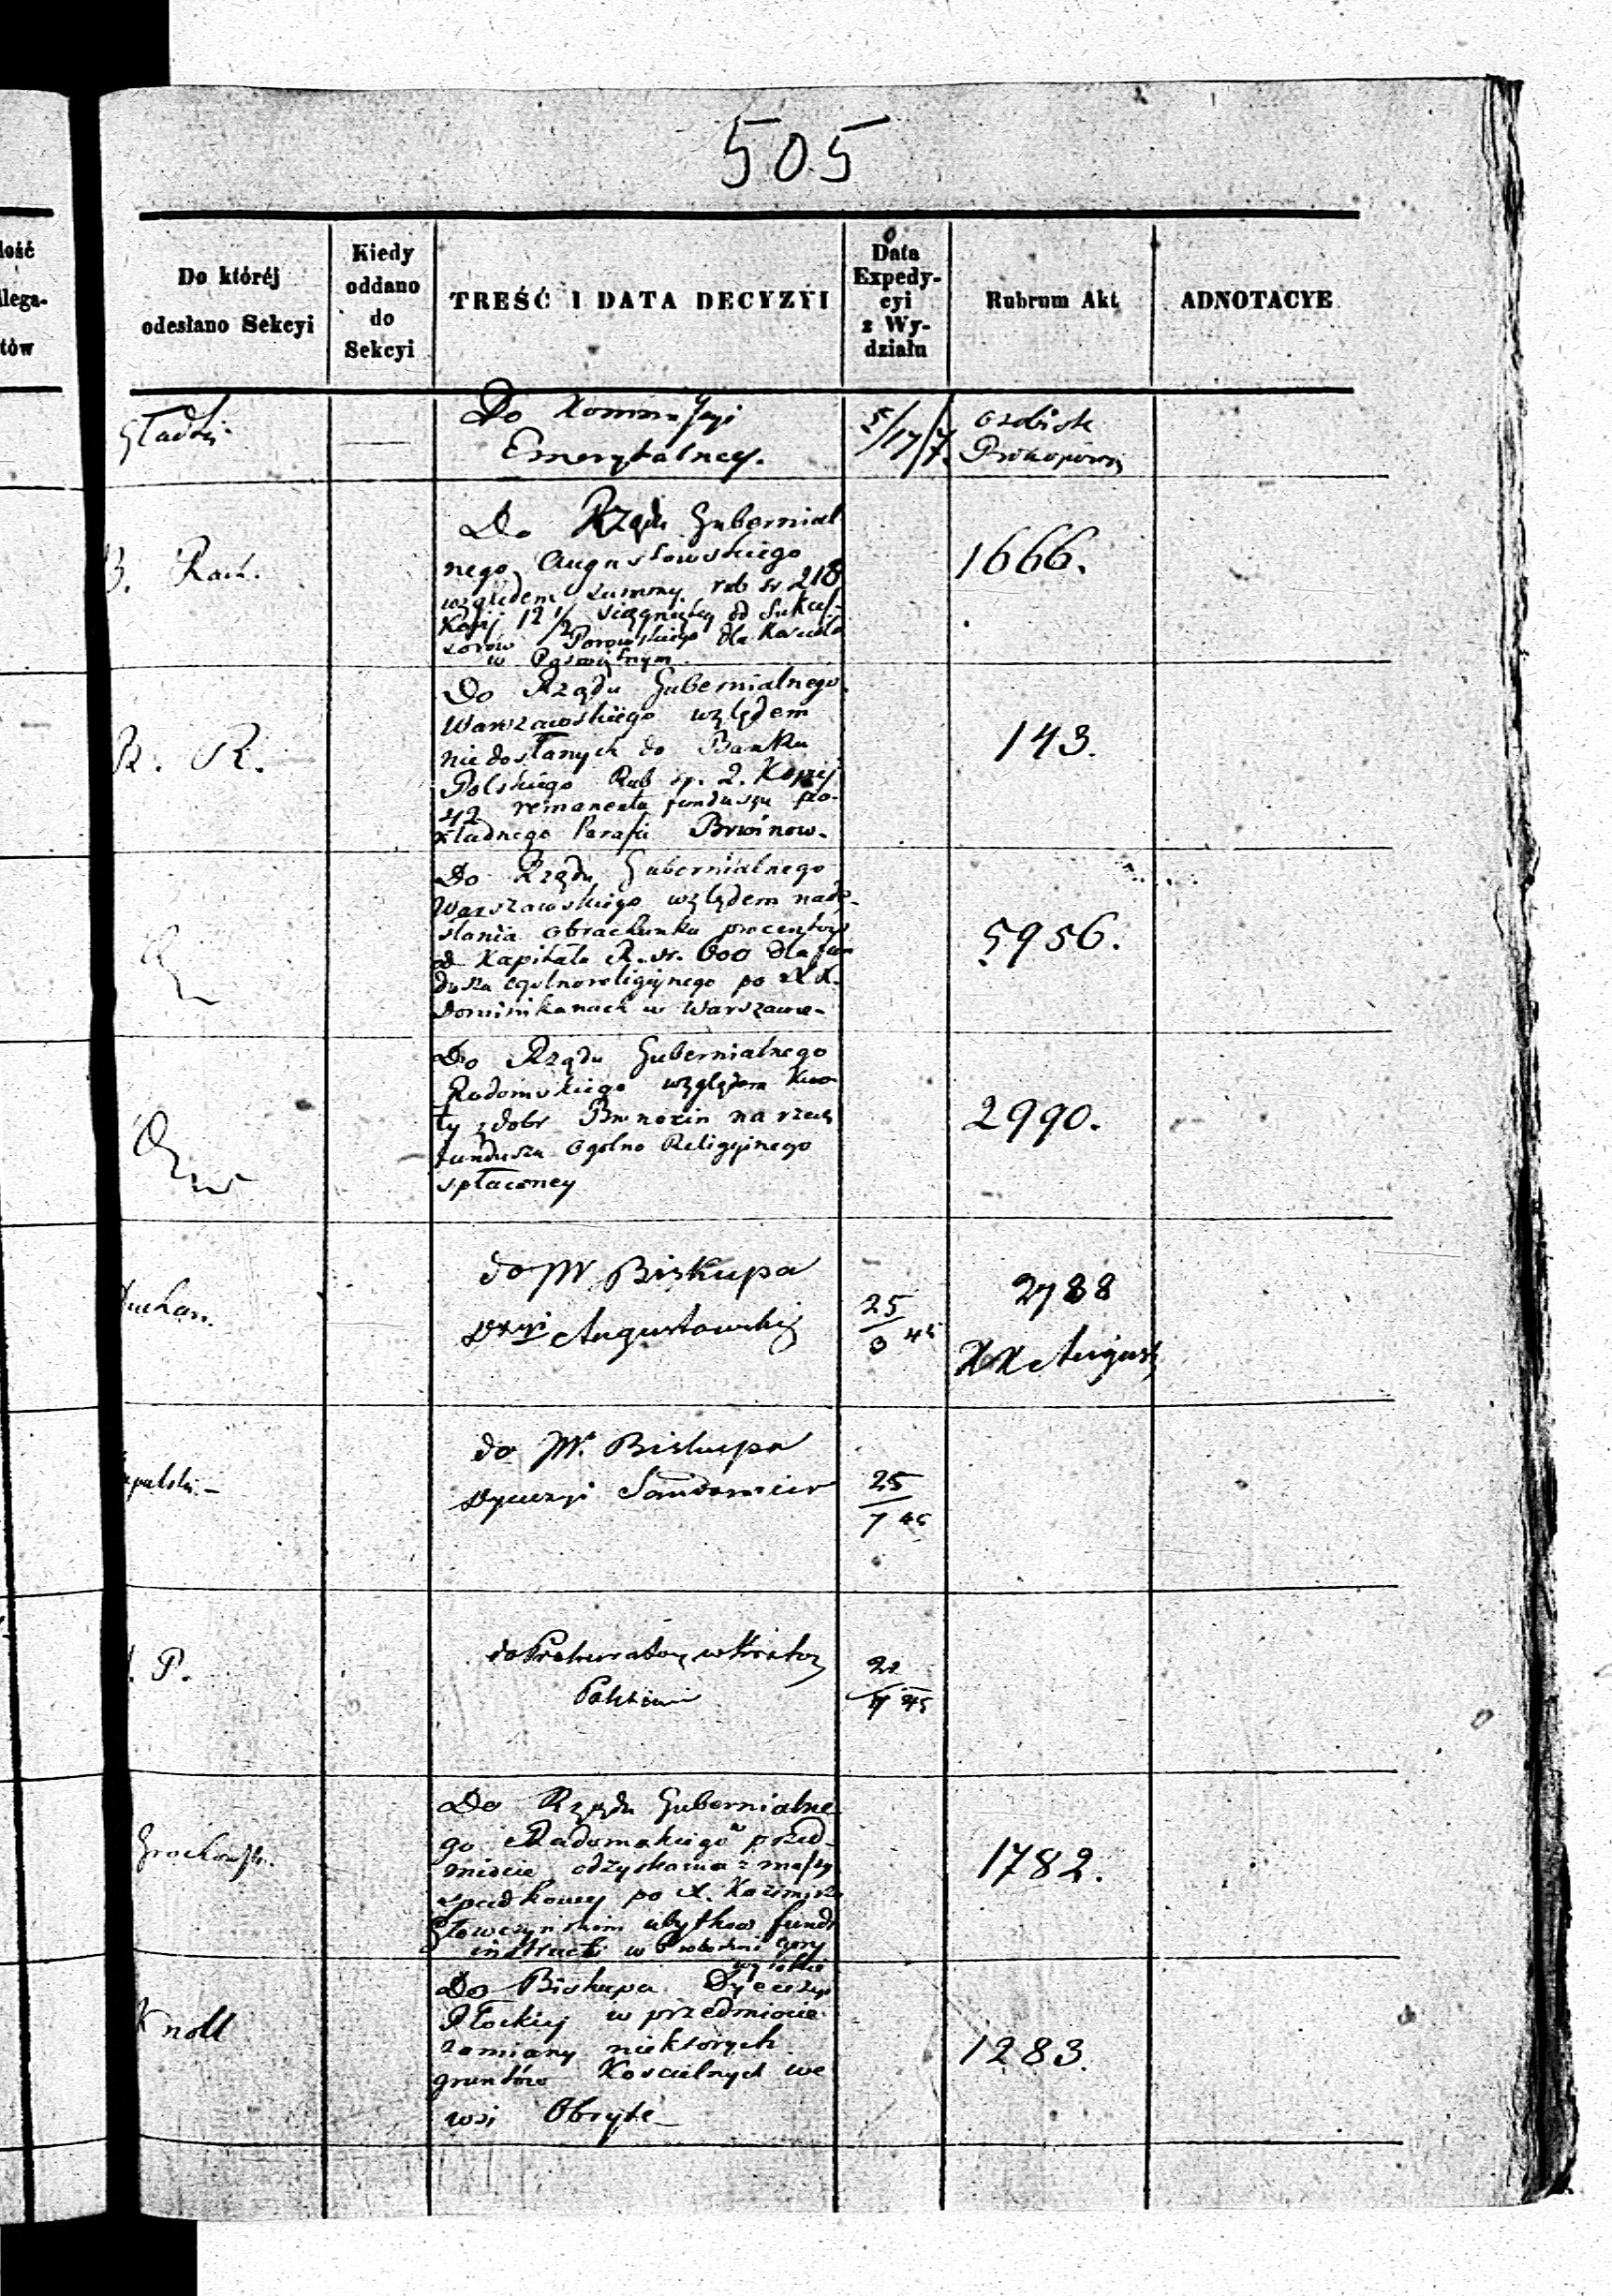 505
Do któréj
odesłano Sekcyi
Kiedy
oddano
do
Sekcyi
TREŚĆ I DATA DECYZYI
Data
Expedy-
cyi
z Wy-
działu
Rubrum Akt
ADNOTACYE
Do Kommissyi
Emerytalney.
5/17/7.
osobiste
B. Rach.
Do Rządu Gubernial
nego Augustowskiego
względem summy rub sr 218
Kopij 12 1/2 ściągniętey od Sukces-
sorów Porowskiego dla Kościoła
w
1666.
R. R.
Do Rządu Gubernialnego
Warszawskiego względem
niedosłanych do Banku
Polskiego Rub sr. 2. Kopij
42 remanentu funduszu po-
kładnego Parafii Brwinow-
143.
Do Rządu Gubernialnego
Warszawskiego względem nade-
słania obrachunku procentów
od Kapitału R. sr. 600 dla fun
duszu ogólnoreligijnego po XX.
Dominikanach w Warszawie-
5956.
Do Rządu Gubernialnego
Radomskiego względem Kwo-
ty z dobr na rzecz
funduszu Ogolno Religijnego
spłaconey
2990.
do JW Biskupa
Dyi Augustowskiej
25
8 45
2788
XX August
do JW. Biskupa
Dyecezyi Sandomier
25
7 45
P.
do Prokuratoryi w Królest
Polskiem
45
Do Rządu Gubernialne
go Radomskiego w przed-
miocie odzyskania z massy
spadkowey po X. Kazimirz
ubytków fund
instructi w Probostwi Gory
wysokie
1782.
Knoll
Do Biskupa Dyecezyi
Płockiej w przedmiocie
zamiany niektorych
gruntów Koscielnych we
wsi Obryte-
1283.